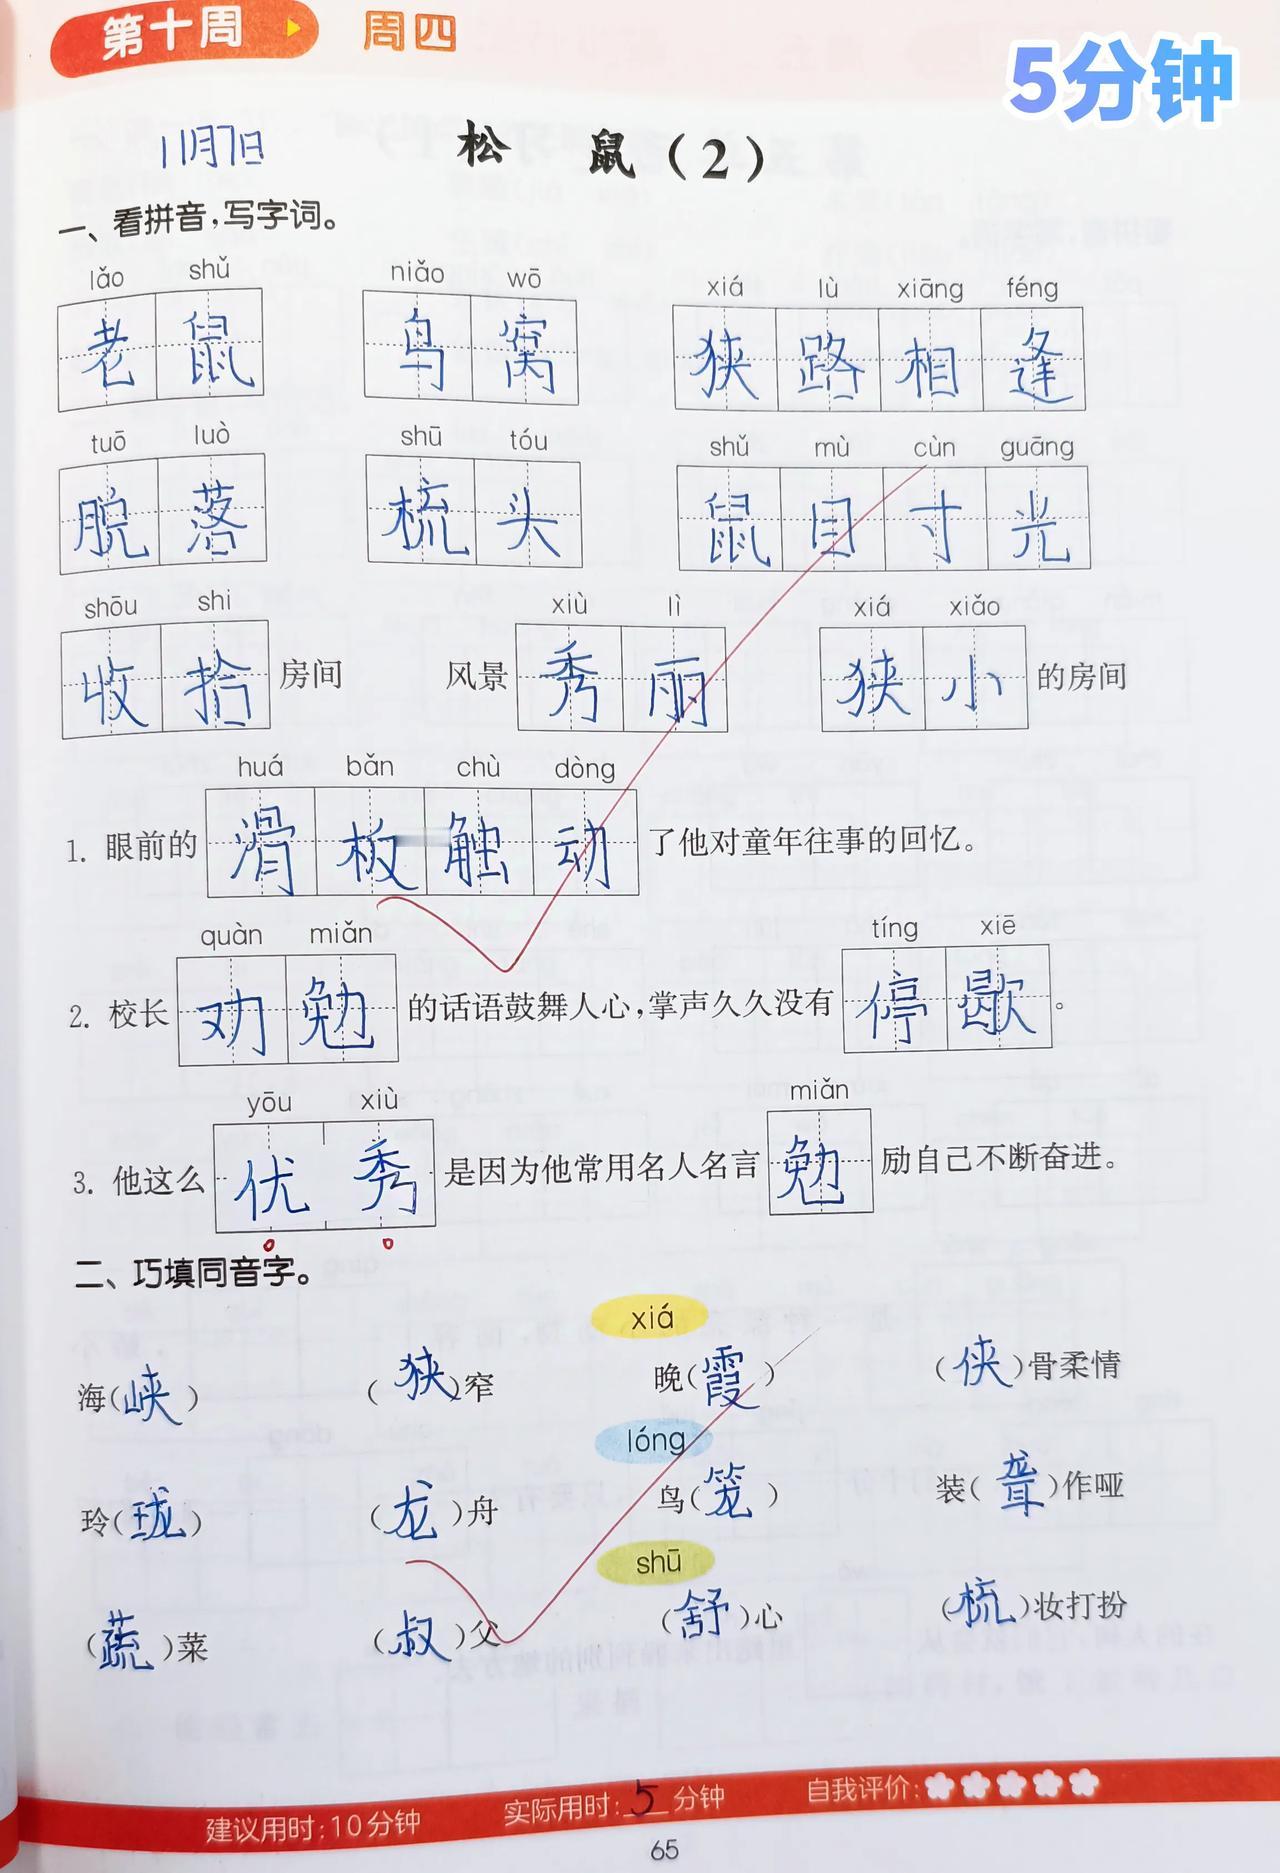 第十周 周四
5分钟
11月7日
松 鼠（2）
一、看拼音，写字词。
lǎo shǔ niǎo wō xiá lù xiāng féng
老鼠 鸟窝 狭路相逢
tuō luò shū tóu shǔ mù cùn guāng
脱落 梳头 鼠目寸光
shōu shi xiù lì xiá xiǎo
收拾房间 风景秀丽 狭小的房间
huá bǎn chù dòng
1. 眼前的滑板触动了他对童年往事的回忆。
quàn miǎn tíng xiē
2. 校长劝勉的话语鼓舞人心，掌声久久没有停歇。
yōu xiù miǎn
3. 他这么优秀是因为他常用名人名言勉励自己不断奋进。
二、巧填同音字。
xiá
海（峡） （狭）窄 晚（霞） （侠）骨柔情
lóng
玲（珑） （龙）舟 鸟（笼） 装（聋）作哑
shū
（蔬）菜 （叔）父 （舒）心 （梳）妆打扮
建议用时：10分钟 实际用时：5分钟 自我评价：
65